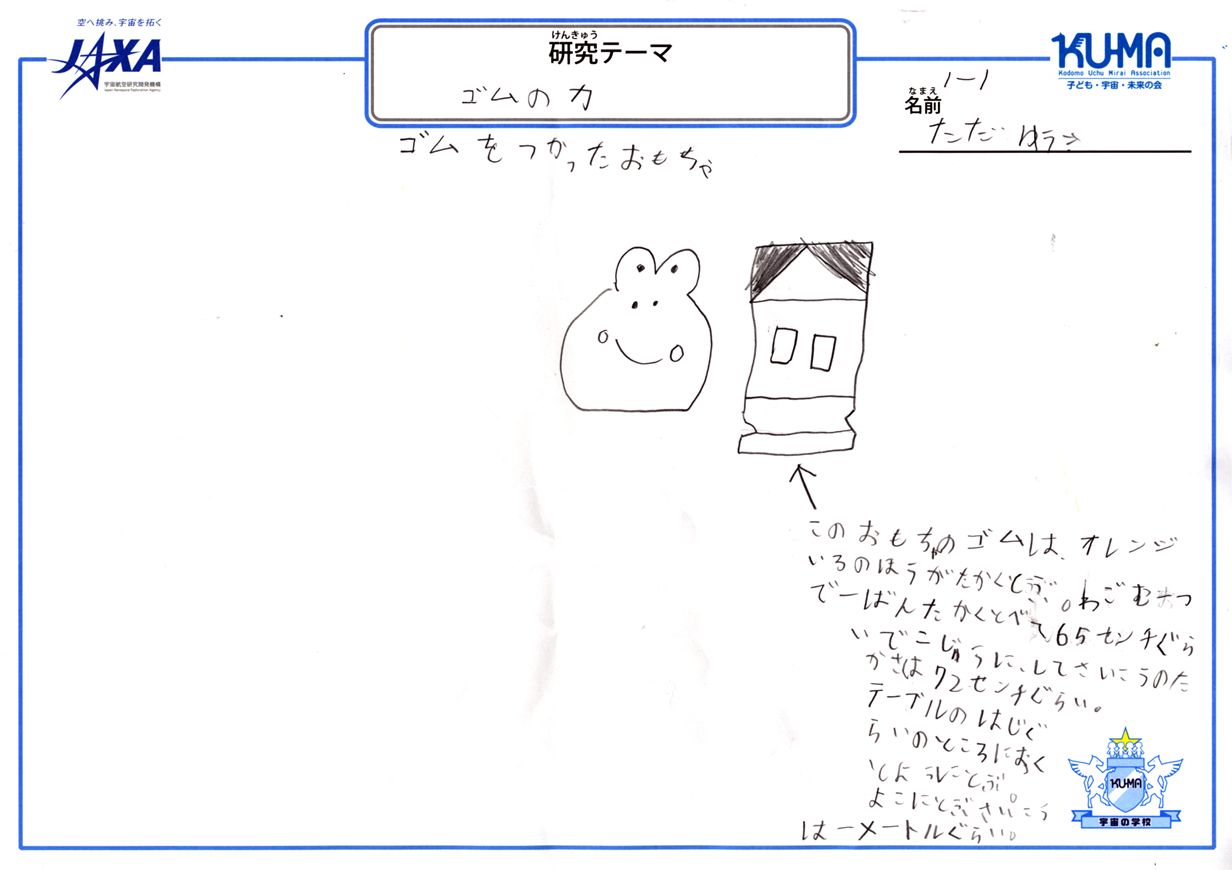 空へ挑み、宇宙を拓く
JAXA
宇宙航空研究開発機構
Japan Aerospace Exploration Agency
けんきゅう
研究テーマ
ゴムの力
KU-MA
Kodomo Uchu Mirai Association
子ども・宇宙・未来の会
1-1
なまえ
名前
ただ ゆう
ゴムをつかったおもちゃ
このおもちゃのゴムは、オレンジ
いろのほうがたかくとぶ。わごむ つ
で一ばんたかくとべて65センチぐら
いでニじゅうに、してさいこうのた
かさは72センチぐらい。
テーブルのはじぐ
らいのところにおく
とよ にとぶ。
よこにとぶさいこう
は一メートルぐらい。
KU-MA
宇宙の学校